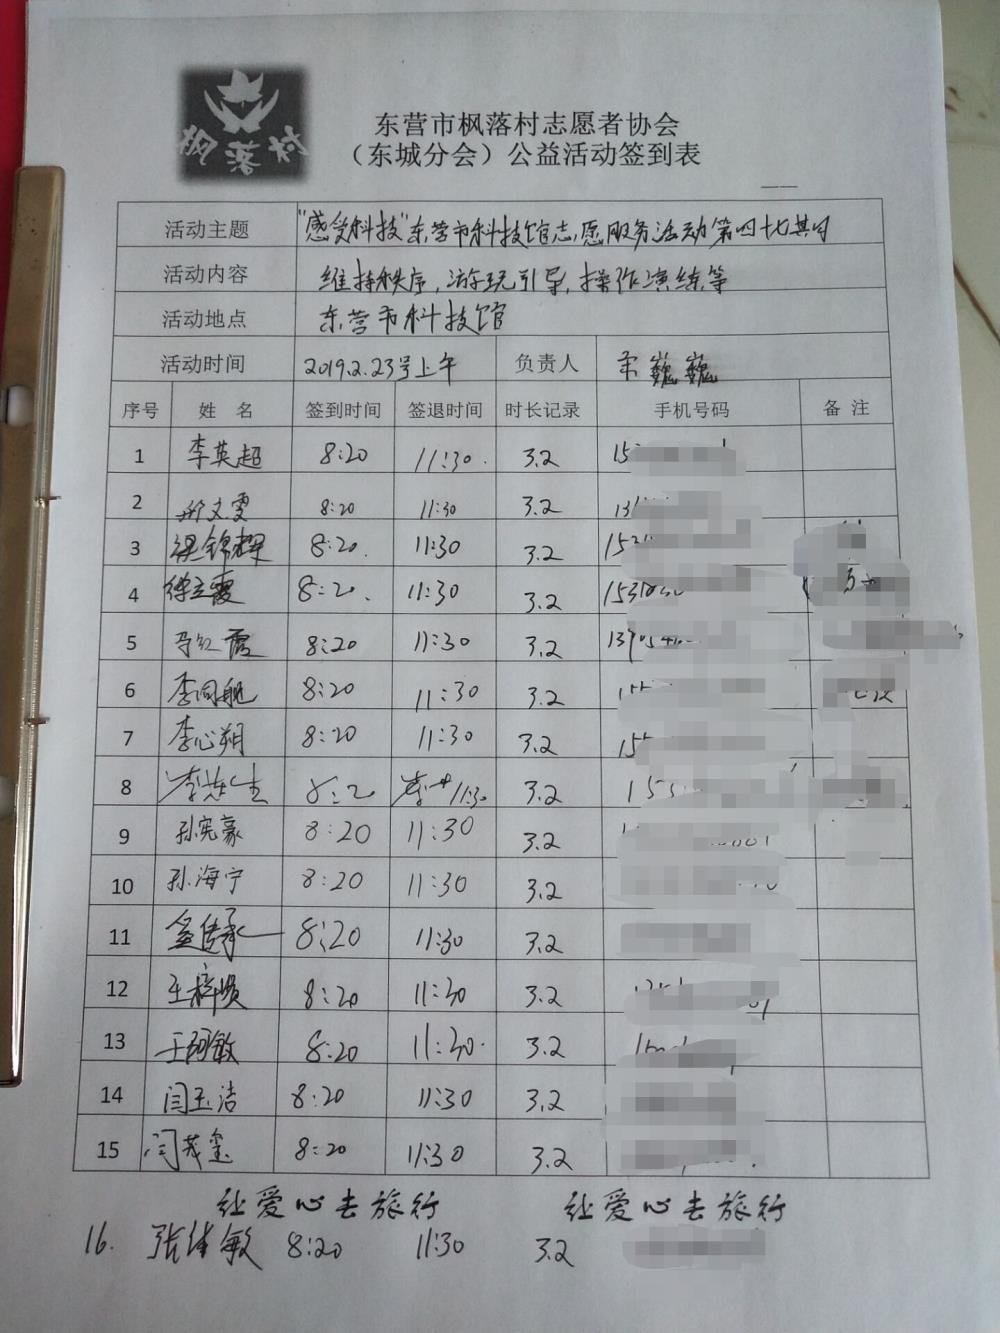 枫落村
东营市枫落村志愿者协会
（东城分会）公益活动签到表
活动主题 "感受科技"东营市科技馆志愿服务活动第四十七其日
活动内容 维持秩序,游玩引导,操作演练等
活动地点 东营市科技馆
活动时间 2019.2.23号上午 负责人 巍巍
序号 姓 名 签到时间 签退时间 时长记录 手机号码 备 注
1 李英超 8:20 11:30. 3.2 15
2 文雯 8:20 11:30 3.2 131
3 梁锦辉 8:20. 11:30 3.2 153
4 徐立霞 8:20. 11:30 3.2 1531
5 马红霞 8:20 11:30 3.2 13905
6 李同舰 8:20 11:30 3.2 155
7 李心朔 8:20 11:30 3.2 155
8 李 生 8:2 11:30 3.2 153
9 孙宪豪 8:20 11:30 3.2
10 孙海宁 8:20 11:30 3.2
11 孟传承 8:20 11:30 3.2
12 王梓 8:20 11:30 3.2
13 王阿敏 8:20 11:30. 3.2 15
14 闫玉洁 8:20 11:30 3.2
15 闫茂玺 8:20 11:30 3.2
让爱心去旅行 让爱心去旅行
16. 张佳敏 8:20 11:30 3.2